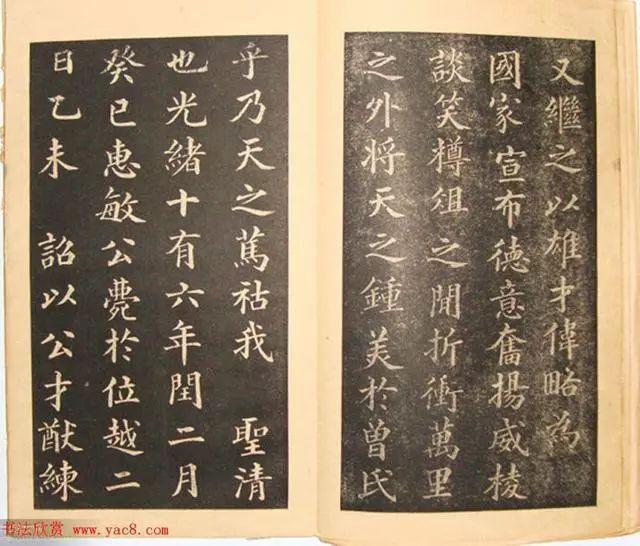 又繼之以雄才偉略為
國家宣布德意奮揚威棱
談笑樽俎之閒折衝萬里
之外將天之鍾美於曾氏
乎乃天之篤祜我　聖清
也光緒十有六年閏二月
癸巳惠敏公薨於位越二
日乙未　詔以公才猷練
书法欣赏 www.yac8.com